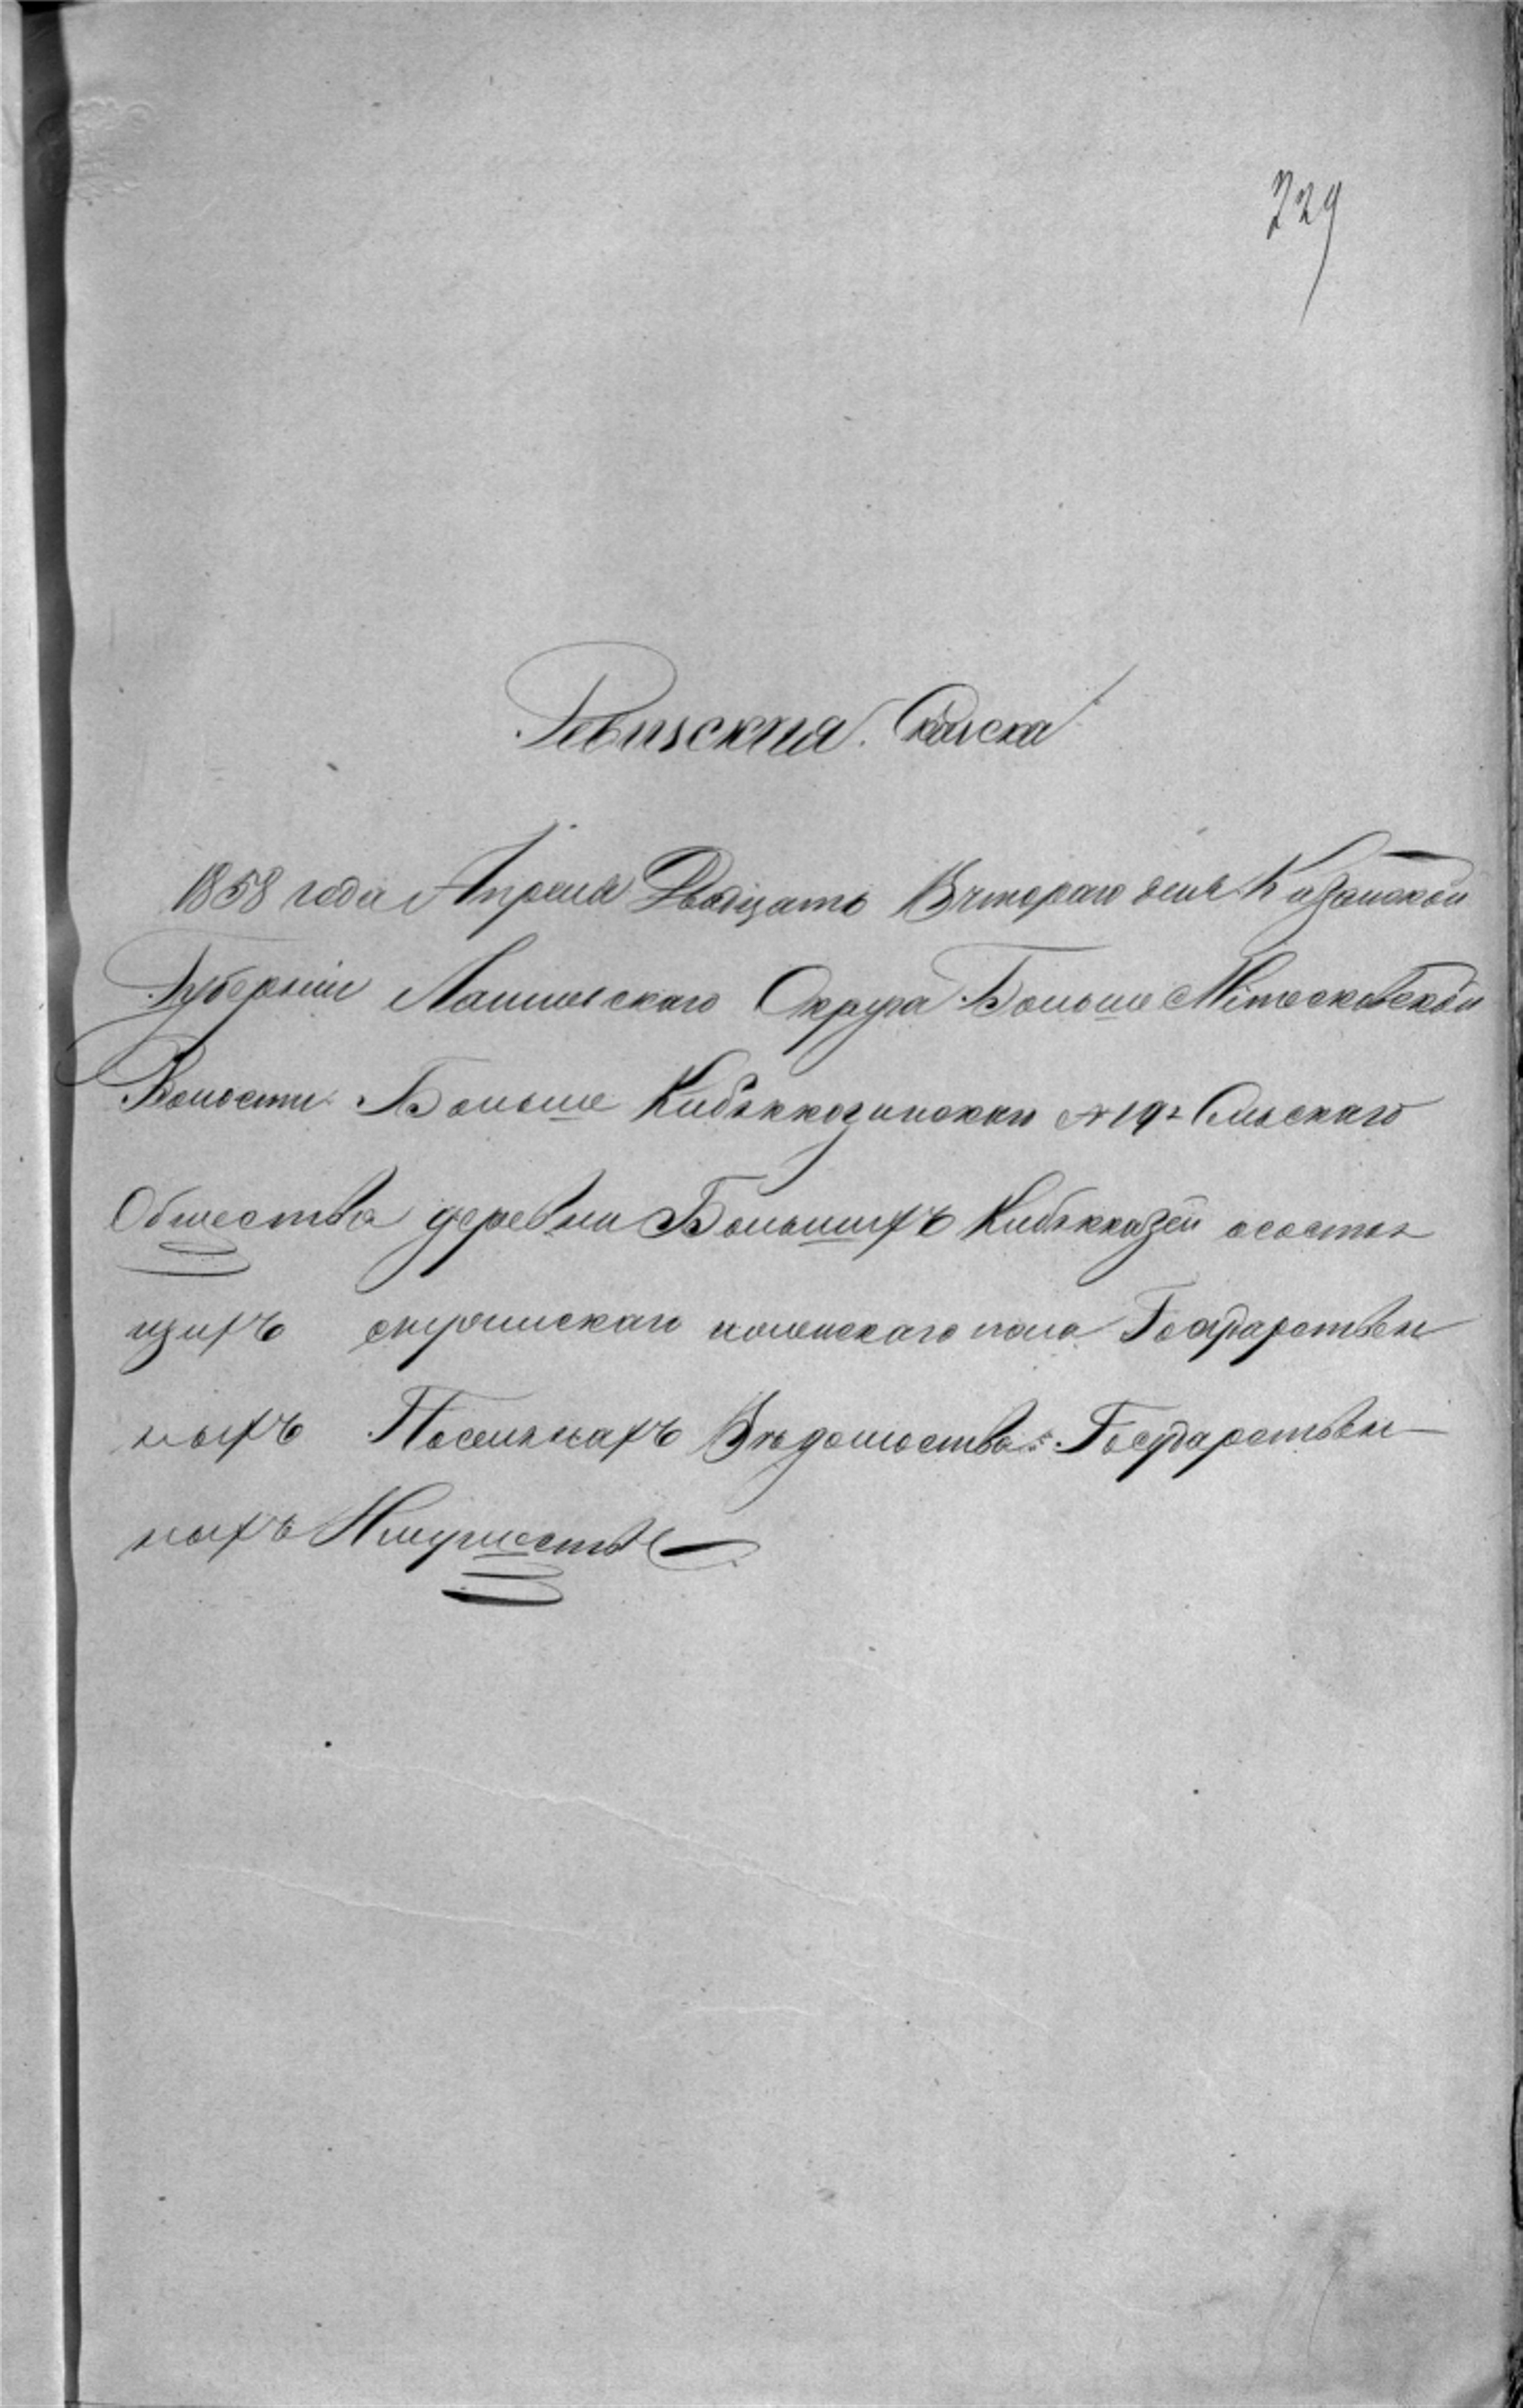 229
Ревизския Скаска
1858 года Апреля Двадцать Втораго дня Казанской
Губерніи Лаишевскаго Округа Больше Метесковской
Волости Больше Кибяккозинскаго № 19 Сельскаго
Общества деревни Большихъ Кибяккозей осостоя
щихъ женскаго пола Государствен
ныхъ Поселянахъ Вѣдомства Государствен
ныхъ Имуществъ